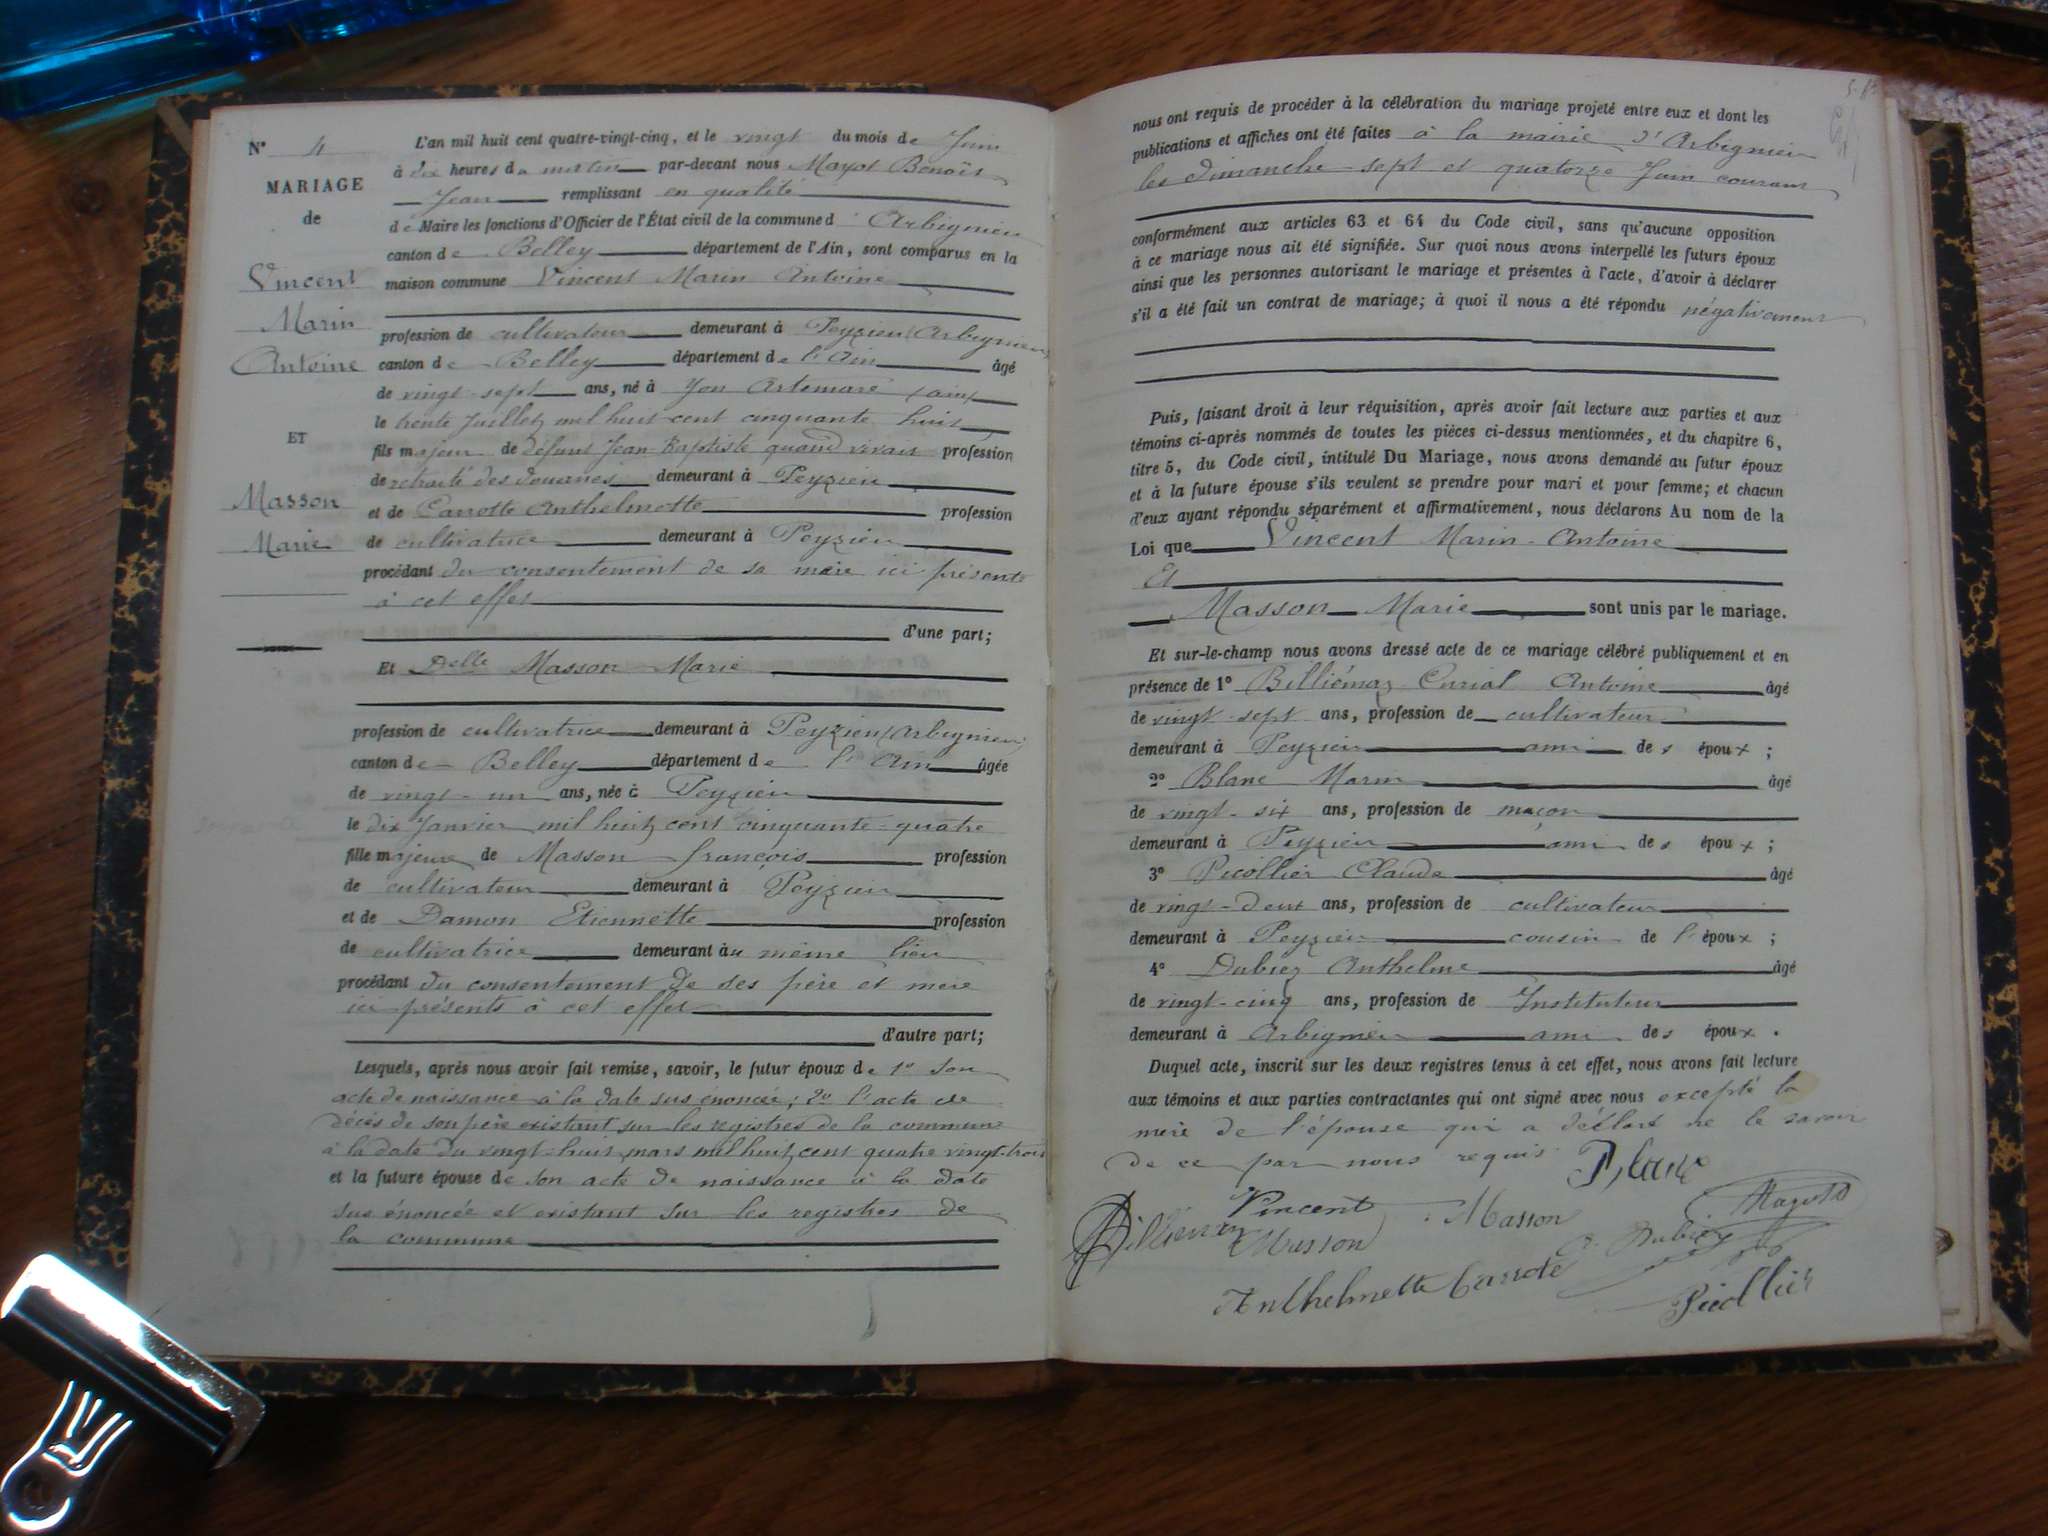 N° 4
MARIAGE
de
Vincent
Marin
Antoine
ET
Masson
Marie
L'an mil huit cent quatre-vingt-cinq, et le vingt du mois de Juin
à dix heures du matin par-devant nous Mayot Benoît
Jean remplissant en qualité
de Maire les fonctions d'Officier de l'État civil de la commune d'Arbignieu
canton de Belley département de l'Ain, sont comparus en la
maison commune Vincent Marin Antoine
profession de cultivateur demeurant à Peyzieu (Arbignieu)
canton de Belley département de l'Ain âgé
de vingt-sept ans, né à Yon Artemare (ain)
le trente Juillet mil huit cent cinquante huit
fils majeur de défunt Jean Baptiste quand vivait profession
de retraité des douanes demeurant à Peyzieu
et de Carrotte Anthelmette profession
de cultivatrice demeurant à Peyzieu
procédant du consentement de sa mère ici présente
à cet effet
d'une part;
Et Delle Masson Marie
profession de cultivatrice demeurant à Peyzieu (Arbignieu)
canton de Belley département de l'Ain âgée
de vingt-un ans, née à Peyzieu
le dix Janvier mil huit cent cinquante-quatre
fille majeure de Masson françois profession
de cultivateur demeurant à Peyzieu
et de Damon Etiennette profession
de cultivatrice demeurant au même lieu
procédant du consentement de ses père et mère
ici présents à cet effet
d'autre part;
Lesquels, après nous avoir fait remise, savoir, le futur époux de 1° son
acte de naissance à la date sus énoncée; 2° l'acte de
décès de son père existant sur les registres de la commune
à la date du vingt-huit mars mil huit cent quatre vingt-trois
et la future épouse de son acte de naissance à la date
sus énoncée et existant sur les registres de
la commune
nous ont requis de procéder à la célébration du mariage projeté entre eux et dont les
publications et affiches ont été faites à la mairie d'Arbignieu
les dimanche sept et quatorze Juin courant
conformément aux articles 63 et 64 du Code civil, sans qu'aucune opposition
à ce mariage nous ait été signifiée. Sur quoi nous avons interpellé les futurs époux
ainsi que les personnes autorisant le mariage et présentes à l'acte, d'avoir à déclarer
s'il a été fait un contrat de mariage; à quoi il nous a été répondu négativement
Puis, faisant droit à leur réquisition, après avoir fait lecture aux parties et aux
témoins ci-après nommés de toutes les pièces ci-dessus mentionnées, et du chapitre 6,
titre 5, du Code civil, intitulé Du Mariage, nous avons demandé au futur époux
et à la future épouse s'ils veulent se prendre pour mari et pour femme; et chacun
d'eux ayant répondu séparément et affirmativement, nous déclarons Au nom de la
Loi que Vincent Marin-Antoine
Et
Masson Marie sont unis par le mariage.
Et sur-le-champ nous avons dressé acte de ce mariage célébré publiquement et en
présence de 1° Billiémaz Curial Antoine âgé
de vingt-sept ans, profession de cultivateur
demeurant à Peyzieu ami des époux;
2° Blanc Marin âgé
de vingt-six ans, profession de maçon
demeurant à Peyzieu ami des époux;
3° Picollier Claude âgé
de vingt-deux ans, profession de cultivateur
demeurant à Peyzieu cousin de l'époux;
4° Dubiez Anthelme âgé
de vingt-cinq ans, profession de Instituteur
demeurant à Arbignieu ami des époux.
Duquel acte, inscrit sur les deux registres tenus à cet effet, nous avons fait lecture
aux témoins et aux parties contractantes qui ont signé avec nous excepté la
mère de l'épouse qui a déclaré ne le savoir
de ce par nous requis.
Blanc
Vincent Masson
Masson
Dubiez
Anthelmette Carrote